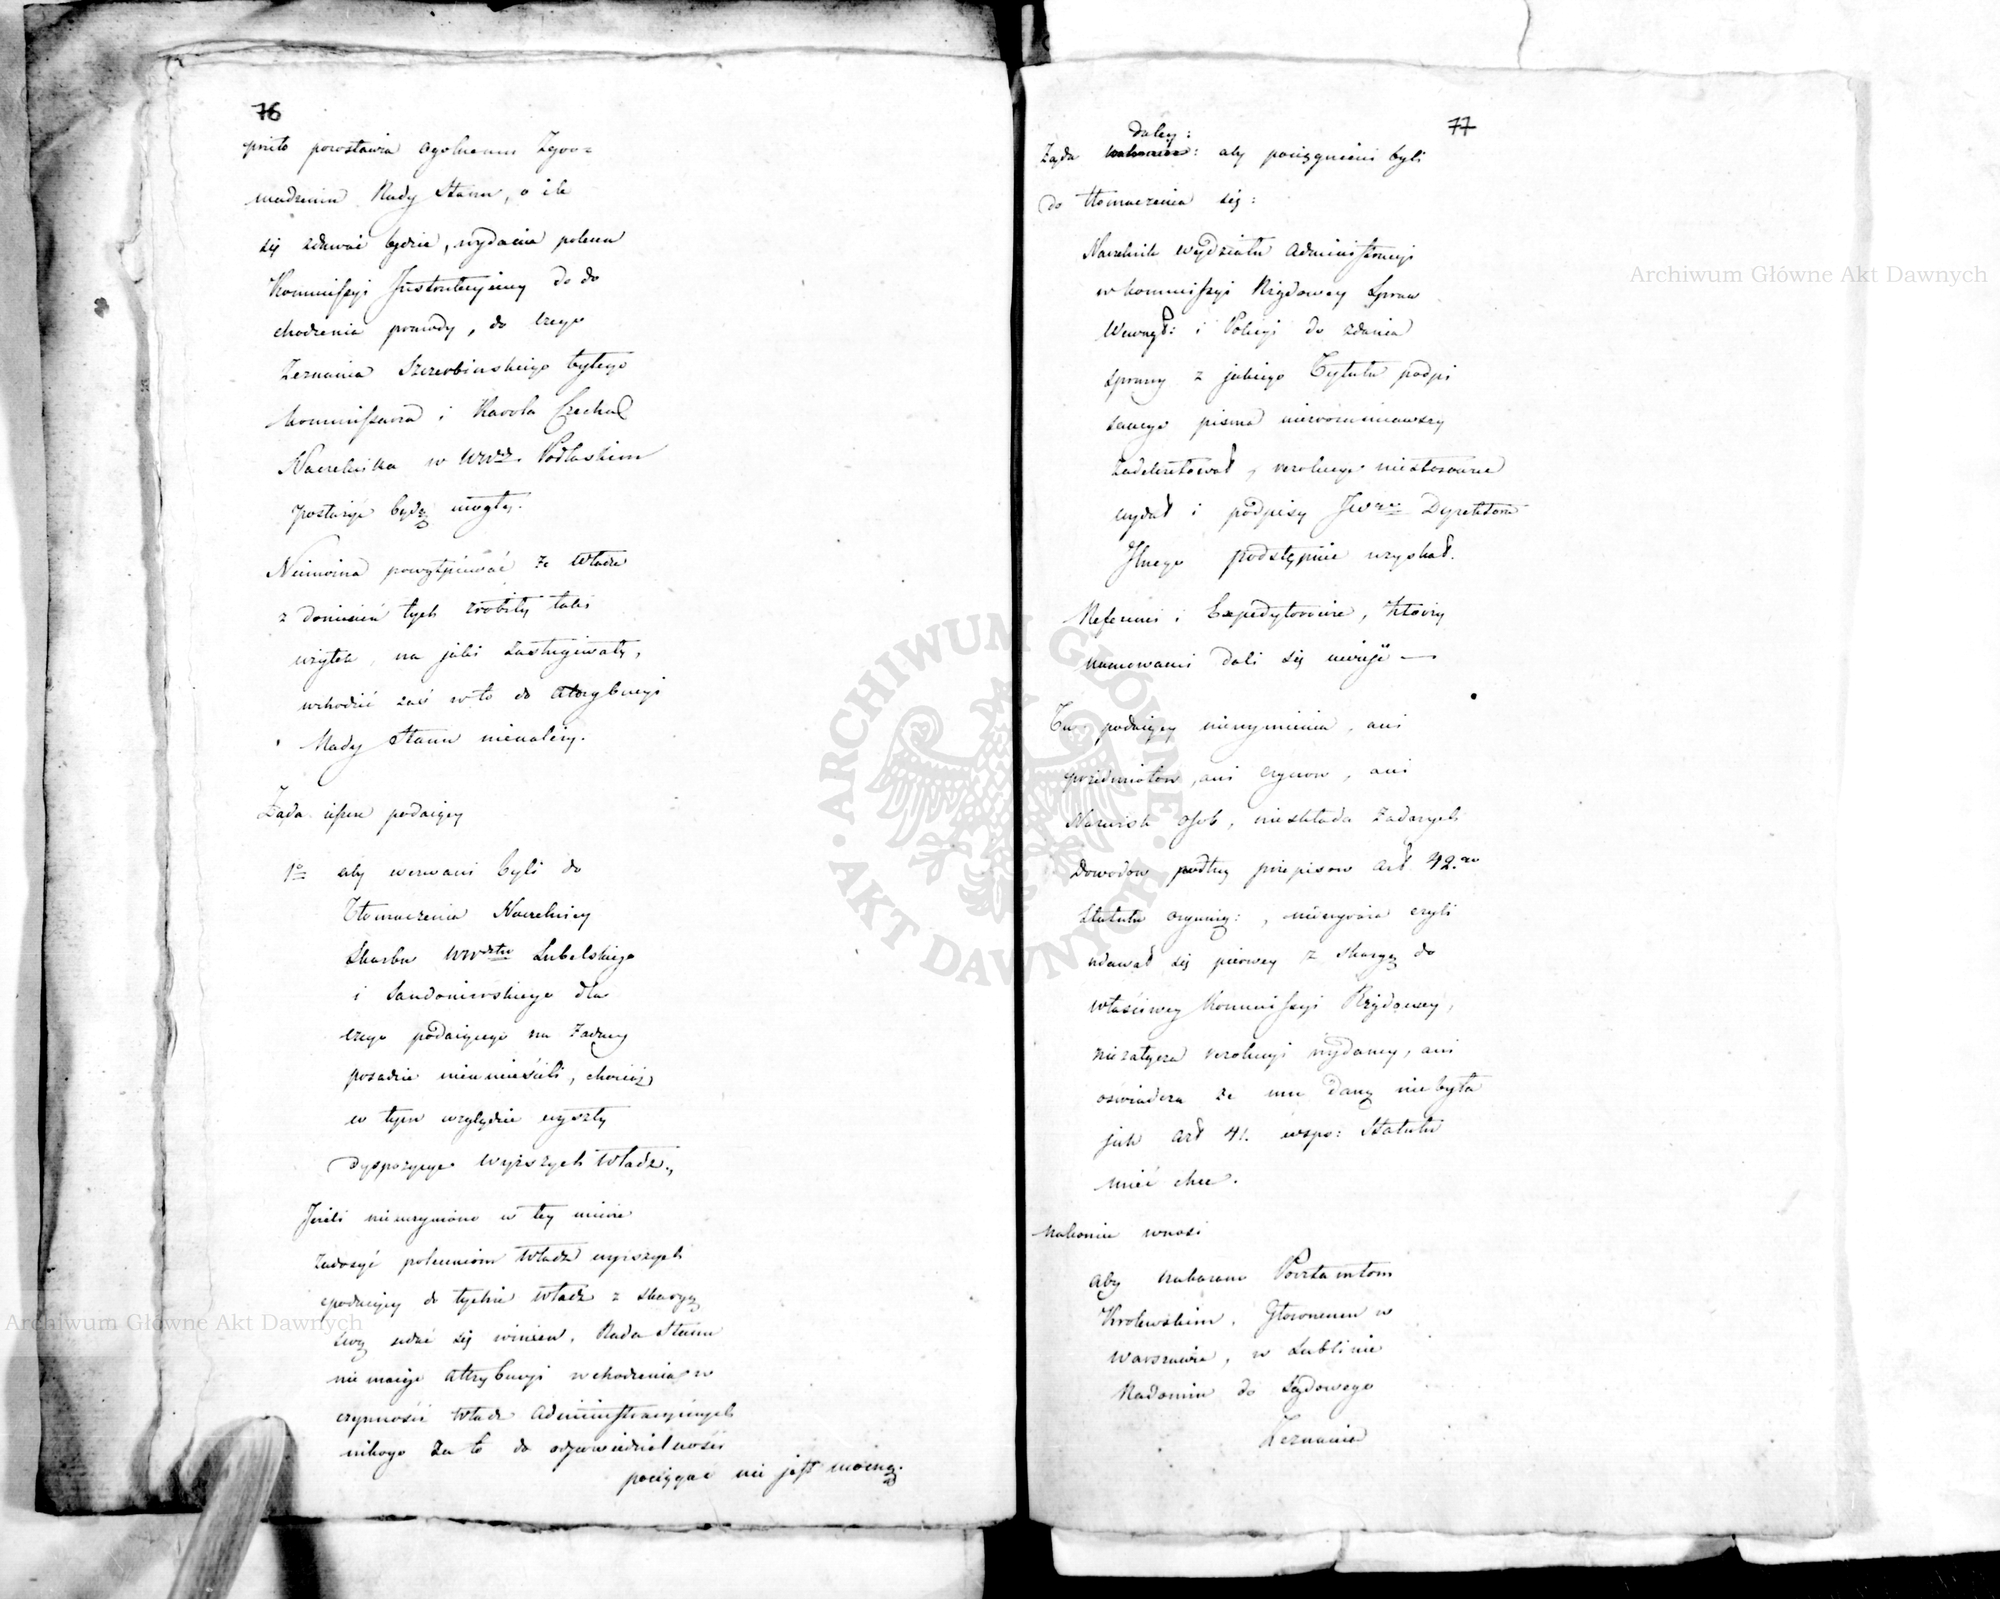 76
przeto pozostawia ogolnemu Zgro=
madzeniu Rady Stanu, o ile
się zdawać będzie, wydanie polecen
Kommissyi Instrukcyiney do do
chodzenia prawdy, do czego
Zeznania Szczerbinskiego byłego
Kommissarza i Karola Czechul
Naczelnika w Wwdz. Podlaskim
posłużyć będą mogły.
Niemożna powątpiewać że Władze
z doniesień tych zrobiły taki
użytek, na jaki zasługiwały,
wchodzić zaś w to do Atrybucyi
Rady Stanu nienależy.
Żąda ieszcze podaiący
1º aby wezwani byli do
Tłomaczenia Naczelnicy
Skarbu Wwdztw Lubelskiego
i Sandomirskiego dla
czego podaiącego na żadney
posadzie nieumieścili, chociaż
w tym względzie wyszły
dyspozycye wyższych Władz.,
Jeżeli nieuczyniono w tey mierze
zadosyć poleceniom Władz wyższych
podaiący do tychże Władz z skargą
swą udać się winien, Rada Stanu
nie maiąc Attrybucyi wchodzenia w
czynności Władz Administracyinych
nikogo za to do odpowiedzialności
pociągać nie jest mocną.
77
daley:
Żąda : aby pociągnieni byli
do tłomaczenia się:
Naczelnik wydziału Administracyi
w Kommissyi Rządowey Spraw
Wewnęt: i Policyi do zdania
sprawy z jakiego Tytułu podpi
sanego pisma niezrozumiawszy
zadekretował, rezolucye niestosowne
wydał i podpisy JW Dyrektora
Jlnego podstępnie uzyskał.
Referenci i Expedytorowie, którzy
namowami dali się uwieść —
Tu podaiący niewymienia, ani
przedmiotow, ani czynow, ani
Nazwisk osob, nieskłada żadnych
dowodow podług przepisow Art. 42.go
Statutu organicz:, niewyraża czyli
udawał się pierwey z skargą do
właściwey Kommissyi Rządowey,
niezałącza rezolucyi wydaney, ani
oświadcza że mu daną niebyła
jak Art 41. wspo: Statutu
mieć chce.
Nakoniec wnosi
aby nakazano Pocztamtom
Krolewskim, Głownemu w
Warszawie, w Lublinie
Radomiu do Sądowego
Zeznania
Archiwum Główne Akt Dawnych
Archiwum Główne Akt Dawnych
ARCHIWUM GŁÓWNE AKT DAWNYCH